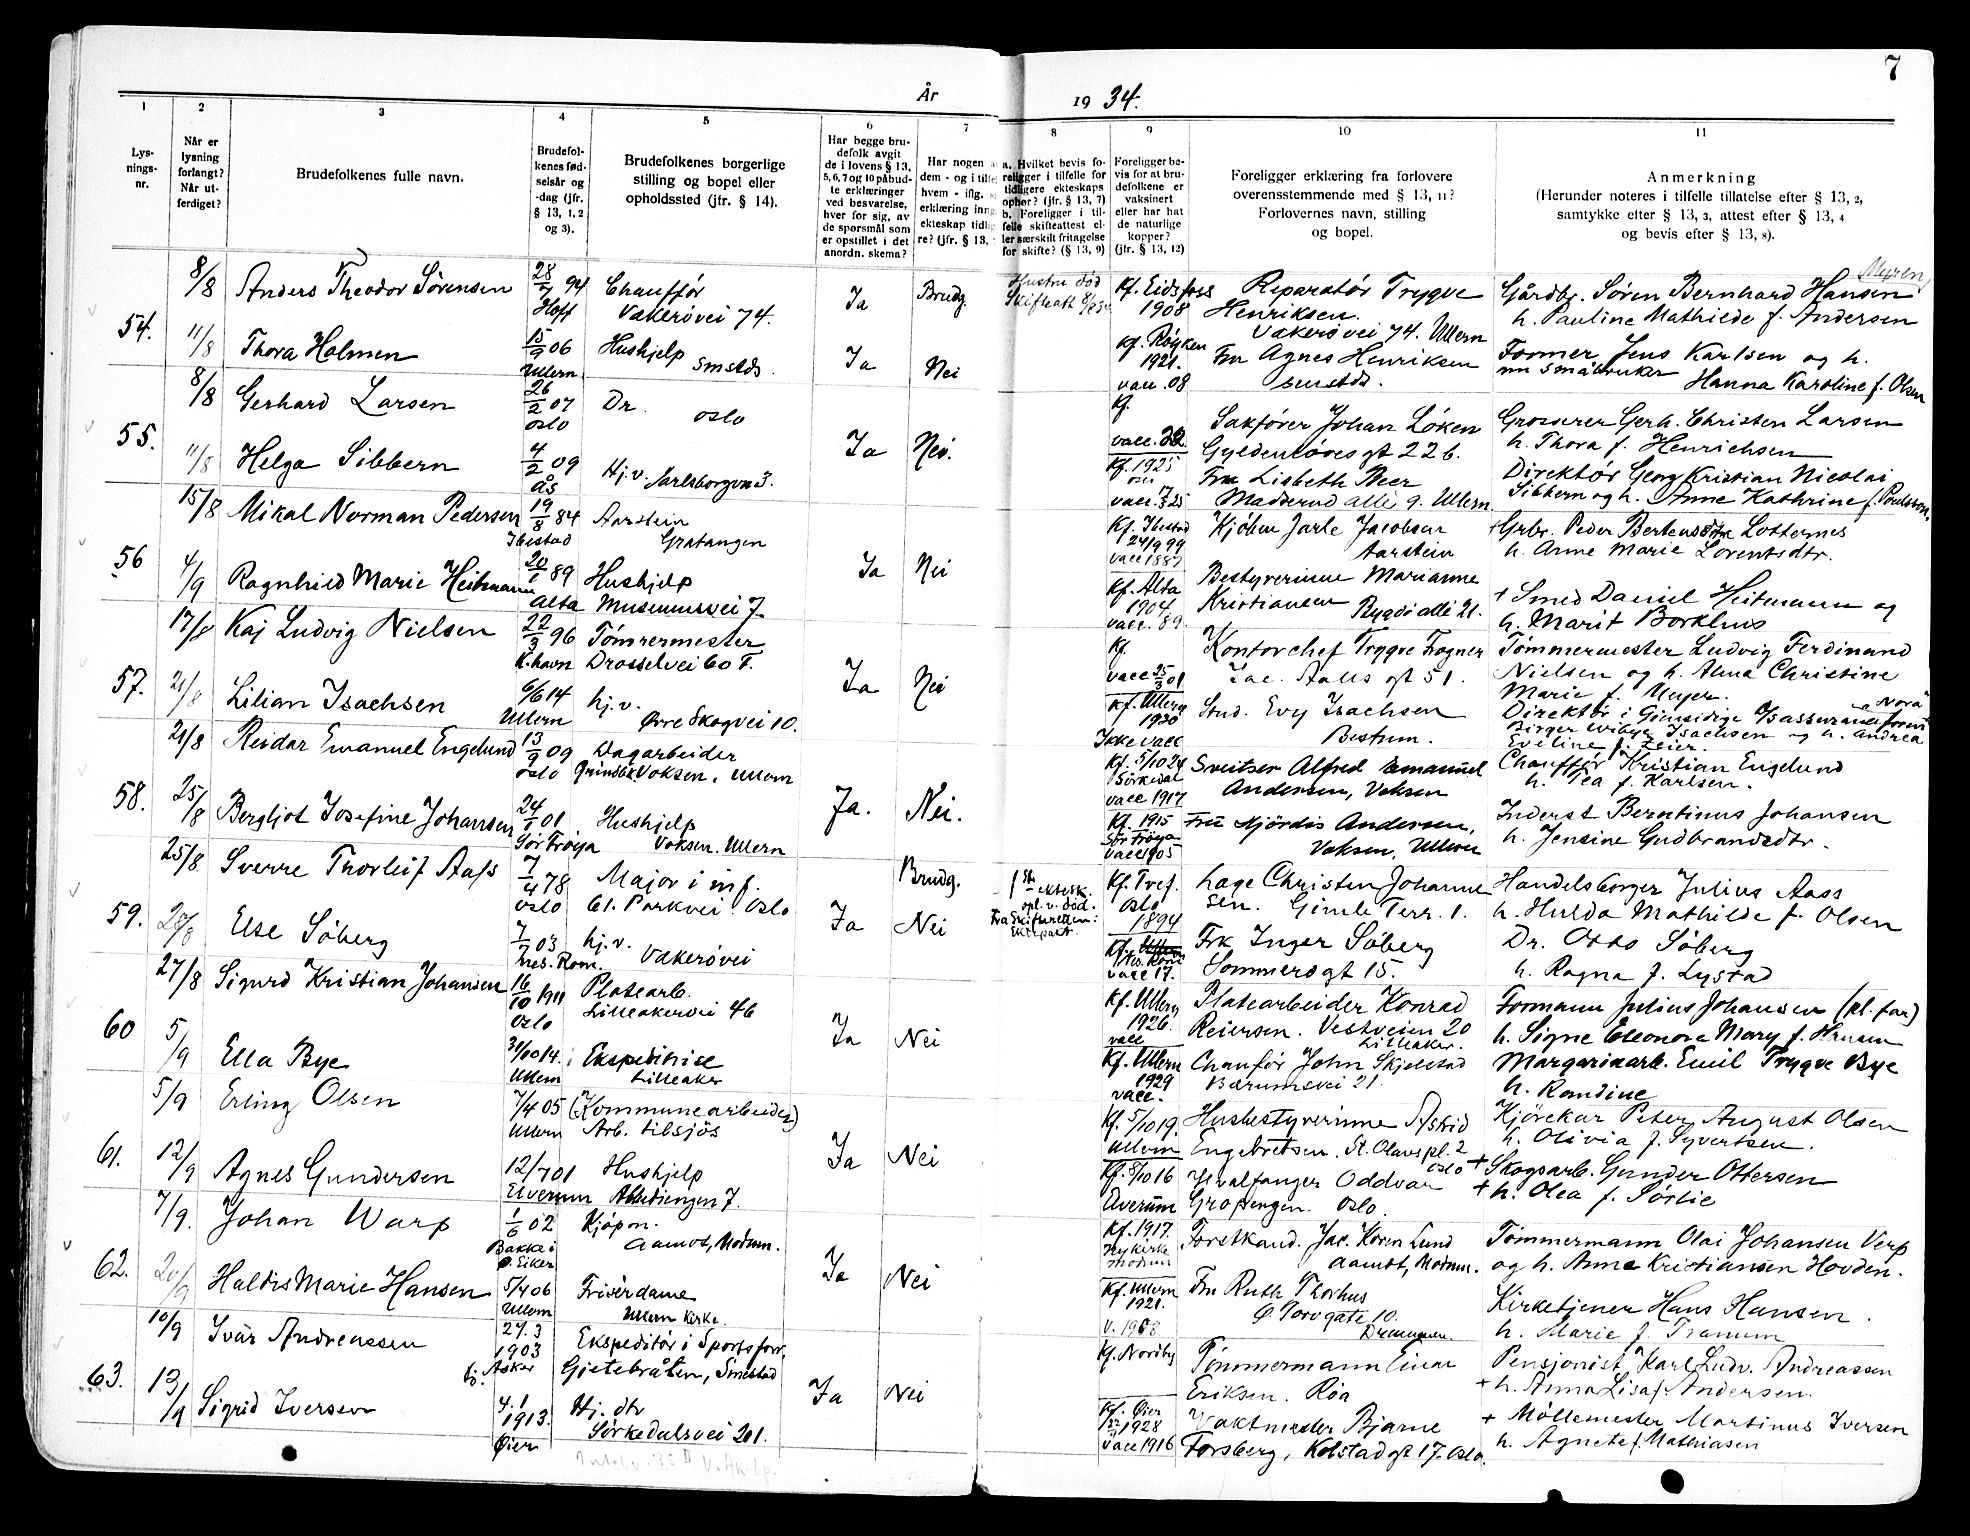 7
År 1934.
1
2
3
4
5
6
7
8
9
10
11
Lys-
nings-
nr.
Når er
lysning
forlangt?
Når ut-
ferdiget?
Brudefolkenes fulle navn.
Brudefol-
kenes fød-
selsår og
-dag (jfr.
§ 13, 1, 2
og 3).
Brudefolkenes borgerlige
stilling og bopel eller
opholdssted (jfr. § 14).
Har begge bru-
defolk avgit
de i lovens § 13,
5, 6, 7 og 10 påbud-
te erklæringer
ved besvarelse,
hver for sig, av
de spørsmål som
er opstillet i det
anordn. skema?
Har nogen
dem - og i tilf
hvem - iflg.
erklæring inng
ekteskap tidlig
re? (jfr. § 13,
a. Hvilket bevis fo-
religger i tilfelle for
tidligere ekteskaps
ophør? (jfr. § 13, 7)
b. Foreligger i til-
felle skifteattest el-
ler særskilt fritagelse
for skifte? (§ 13, 9)
Foreligger be-
vis for at bru-
defolkene er
vaksinert
eller har hat
de naturlige
kopper?
(jfr. § 13, 12)
Foreligger erklæring fra forlovere
overensstemmende med § 13, 11?
Forlovernes navn, stilling
og bopel.
Anmerkning
(Herunder noteres i tilfelle tillatelse efter § 13, 2,
samtykke efter § 13, 3, attest efter § 13, 4
og bevis efter § 13, 8).
54.
8/8 Anders Theodor Sørensen 28/7 94 Hoff
Chauffør
Vakerøvei 74.
Ja Brudg
Hustru død
Kf. Eidsfoss
1908
Reparatør Trygve
Henriksen.
Vakerøvei 74. Ullern
Myren
Gårdbr. Søren Bernhard Hansen
h. Pauline Mathilde f. Andersen
11/8 Thora Holmen 15/9 06 Ullern
Hushjelp
smstds.
Ja Nei
Kf. Røyken
1921.
vacc. 08
Fru Agnes Henriksen
smstds.
Former Jens Karlsen og h.
nu småbruker Hanna Karoline f. Olsen
55.
8/8 Gerhard Larsen 26/2 07 Oslo
Dr. Oslo
Kf.
Sakfører Johan Løken
Gyldenløves gt 22 b.
Grosserer Gerh. Christen Larsen
h. Thora f. Henrichsen
11/8 Helga Sibbern 4/2 09 Ås
Hj. v. Jarlsborgvn 3.
Ja Nei.
Kf. 1925
Fru Lisbeth Neer
Madserud alle 9. Ullern.
Direktør Georg Kristian Nicolai
Sibbern og h. Anne Kathrine f. Poulsson.
56
15/8 Mikal Norman Pedersen 19/8 84 Ibestad
Aarstein
Gratangen
Kf. Ibestad
24/9 99
vacc 1887
Kjøbm Jarle Jacobsen
Aarstein
+ Grbr. Peder Bertensen Lotternes
h. Anne Marie Lorentsdtr.
4/9 Ragnhild Marie Heitmann 20/1 89 Alta
Hushjelp
Museumsvei 7.
Ja Nei
Kf. Alta
1904
vacc. 89.
Bestyrerinne Marianne
Kristiansen Bygdø allé 21.
+ Smed Daniel Heitmann og
h. Marit Borklius
57.
17/8 Kaj Ludvig Nielsen 22/3 96 K.havn
Tømrermester
Drosselvei 60 F.
Kf.
vacc 25/3 01
Kontorchef Trygve Fogner
Jac. Aalls gt 51.
Tømmermester Ludvig Ferdinand
Nielsen og h. Alma Christine
Marie f. Meyer.
21/8 Lilian Isachsen 6/6 14 Ullern
hj. v.
Øvre Skogvei 10.
Ja Nei
Kf. Ullern
1930
Ikke vacc
Stud. Evy Isachsen
Bestum.
Direktør i Gjensidige "Nora"
Birger Wibye Isachsen og h. Andrea
Eveline f. Zeier.
58.
21/8 Reidar Emanuel Engelund 13/9 09 Oslo
Dagarbeider
Voksen, Ullern
Kf. 5/10 24
Sørkedal
vacc 1917
Sveitser Alfred Emanuel
Andersen, Voksen
Chauffør Kristian Engelund
h. Tea f. Karlsen.
25/8 Bergljot Josefine Johansen 24/1 01 Sør Frøya
Hushjelp
Voksen. Ullern
Ja. Nei.
Kf. 1915
Sør Frøya
vacc 1905
Fru Hjørdis Andersen,
Voksen, Ullern
Inderst Berntinus Johansen
h. Jensine Gudbrandsdtr.
59.
25/8. Sverre Thorleif Aass 7/4 78 Oslo
Major i inf.
Cl. Parkvei. Oslo
Brudg.
1ste ektesk.
opl. v. død.
Kf. Tref.
Oslo
1894
Lage Christen Johanne
sen. Gimle Terr. 1.
Handelsborger Julius Aass
h. Hulda Mathilde f. Olsen
28/8 Else Søberg 7/7 03 Nes. Rom.
hj. v.
Vakerøvei
Ja Nei
vacc 17.
Frk Inger Søberg
Sommerogt 15.
Dr. Otto Søberg
h. Ragna f. Lystad
60
27/8 Sigurd Kristian Johansen 16/10 1911 Oslo
Platearb.
Lilleakervei 46
Kf. Ullern
1926.
vacc
Platearbeider Konrad
Reiersen. Vestveien 20
Lilleaker.
Formann Julius Johansen (pl. far)
h. Signe Eleonora Mary f. Hansen
5/9 Ella Bye 31/10 14. Ullern
Ekspeditrise
Lilleaker
Ja Nei
Kf. Ullern
1929
vacc.
Chaufør John Skjelstad
Bærumsvei 21.
Margarinarb. Emil Trygve Bye
h. Randine
61.
5/9 Erling Olsen 7/4 05 Ullern
(Kommunearbeider)
Arb. tilsjøs
Kf. 5/10 19.
Ullern
Husbestyrerinne Astrid
Engebretsen. St. Olavs pl. 2
Oslo
Kjørekar Peter August Olsen
h. Olivia f. Syvertsen.
12/9 Agnes Gundersen 12/7 01 Elverum
Hushjelp
Abbediengen 7.
Ja Nei
Kf. 8/10 16
Elverum
Hvalfanger Oddvar
Gropengen. Oslo.
+ Skogsarb. Gunder Ottersen
+ h. Olea f. Sørlie
62.
7/9. Johan Warp 1/6 02 Bakke i
Ø. Eiker
Kjøpm.
Aamot, Modum.
Kf. 1917.
Nykirke
Modum
Forstkand. Jac. Koren Lund
Aamot, Modum.
Tømmermann Olai Johansen Verp
og h. Anne Kristiansen Hovden.
20/9 Haldis Marie Hansen 5/4 06 Ullern
Frisérdame
Ullern Kirke.
Ja Nei
Kf. Ullern
1921.
v. 1908
Fru Ruth Thorhus
Ø. Torvgate 10.
Drammen.
Kirketjener Hans Hansen.
h. Marie f. Tranum
63.
10/9 Ivar Andreassen 27.3
1903
Asker
Ekspeditør i Sportsforr.
Gjetebråten, Smestad
Kf. Nordby
Tømmermann Einar
Eriksen. Røa
Pensjonist Karl Ludv. Andreassen
+ h. Anna Lisa f. Andersen.
13/9 Sigrid Iversen 4.1
1913.
Øier
Hj. dtr
Sørkedalsvei 201.
Ja Nei
Kf. Øier
1928
vacc 1916
Vaktmester Bjarne
Forsberg, Kolstadgt 17. Oslo.
+ Møllemester Martinus Iversen
h. Agnete f. Mathiasen